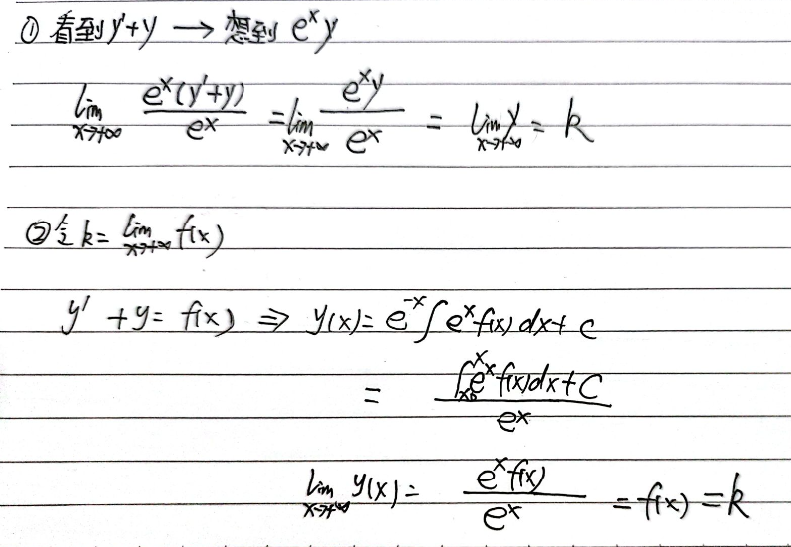 ① 看到 y'+y → 想到 e^x y
lim_{x→+∞} e^x(y'+y)/e^x = lim_{x→+∞} e^x y/e^x = lim_{x→+∞} y = k
② 令 k = lim_{x→+∞} f(x)
y' + y = f(x) ⇒ y(x) = e^{-x} ∫ e^x f(x) dx + C
= (∫_{x_0}^{x} e^x f(x) dx + C)/e^x
lim_{x→+∞} y(x) = e^x f(x)/e^x = f(x) = k